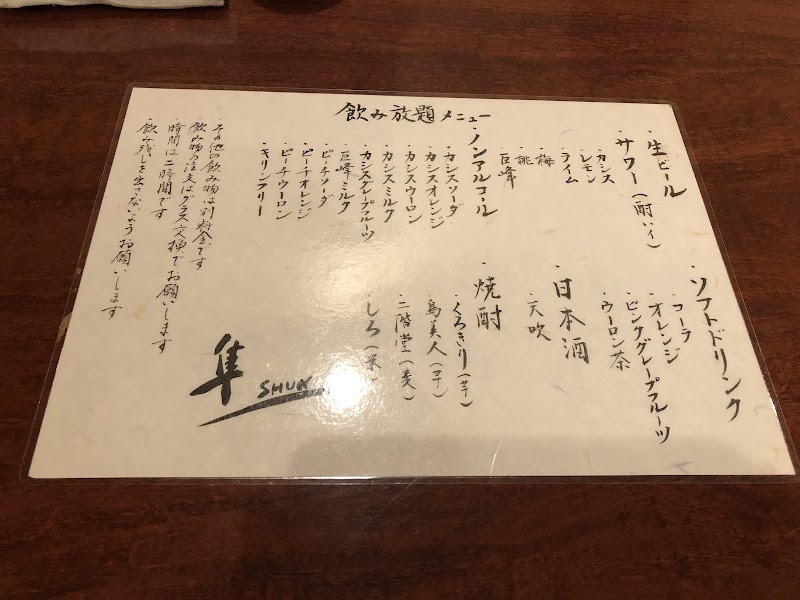 飲み放題メニュー
・生ビール
・サワー(酎ハイ)
カシス
レモン
ライム
梅
桃
巨峰
・ノンアルコール
・カシスソーダ
・カシスオレンジ
・カシスウーロン
・カシスミルク
・カシスグレープフルーツ
・巨峰ミルク
・ピーチソーダ
・ピーチオレンジ
・ピーチウーロン
・キリンフリー
・ソフトドリンク
コーラ
オレンジ
ピンクグレープフルーツ
ウーロン茶
・日本酒
・天吹
・焼酎
・くろきり(芋)
・島美人(芋)
・二階堂(麦)
・しろ(米)
・その他の飲み物は別料金です
・飲み物の注文はグラス交換でお願いします
・時間は二時間です
・飲み残しを出さないようお願いします
隼 SHUN